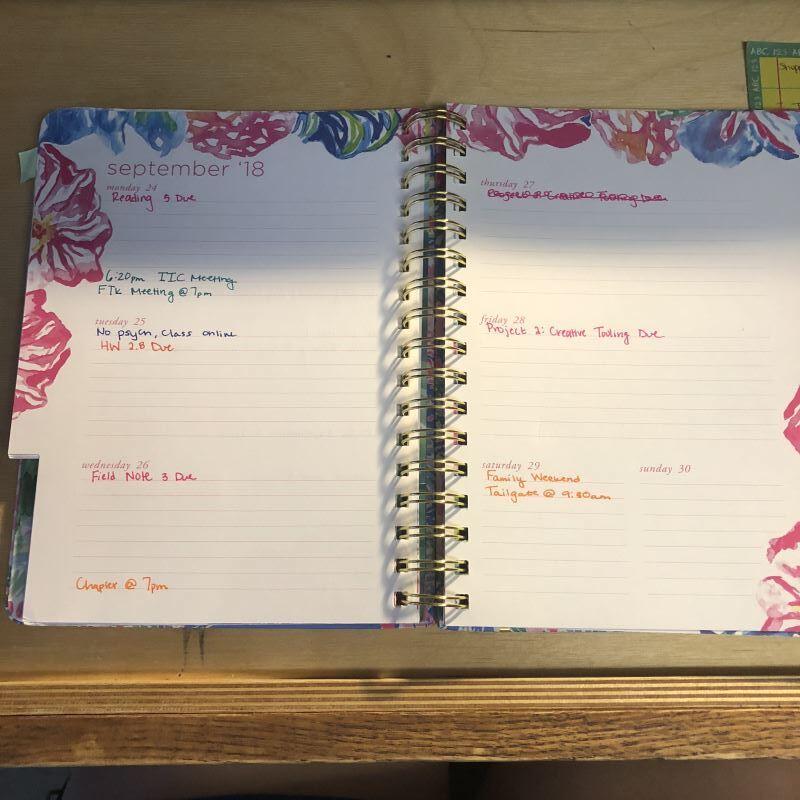 september '18
monday 24
Reading 5 Due
6:20pm IIC Meeting
FTK Meeting @ 7pm
tuesday 25
No psych, Class online
HW 2.B Due
wednesday 26
Field Note 3 Due
Chapter @ 7pm
thursday 27
friday 28
Project 2: Creative Tooling Due
saturday 29
Family Weekend
Tailgate @ 9:30am
sunday 30
ABC 123 AB
ABC 123